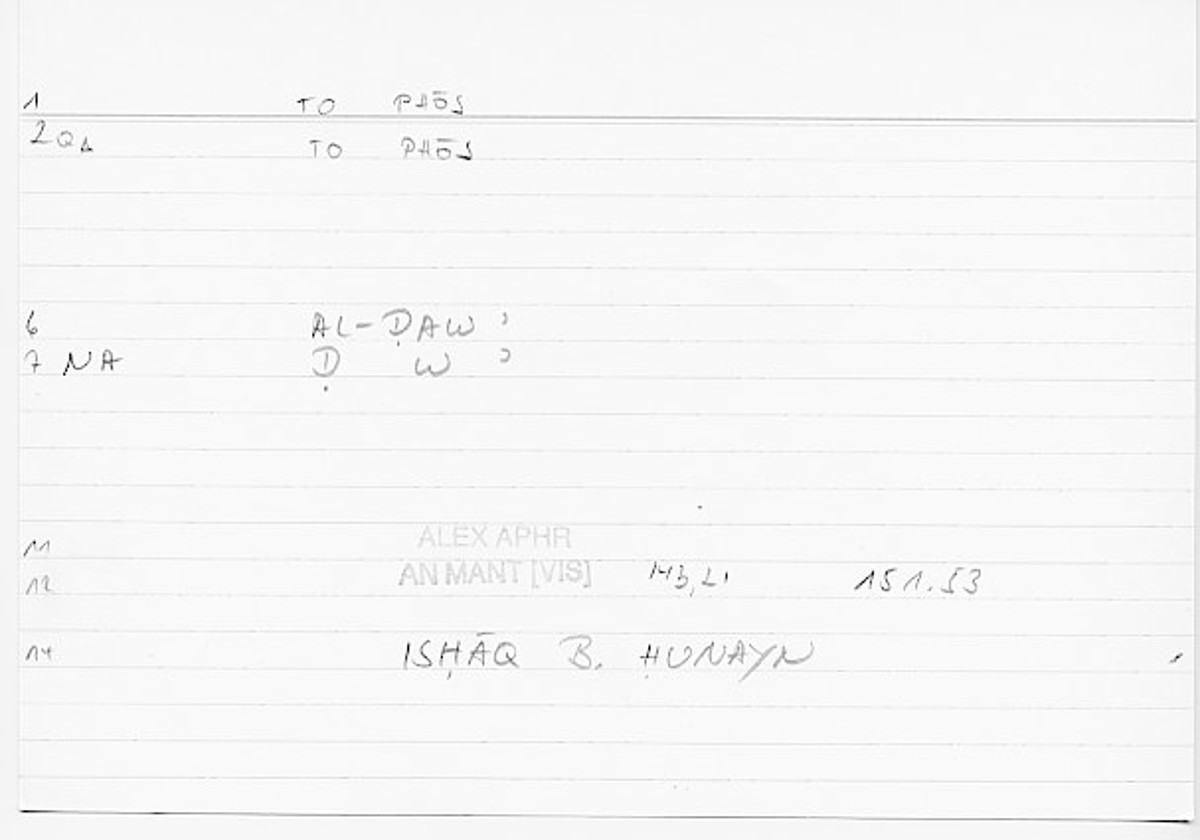 1 TO PHŌS
2 QA TO PHŌS
6 AL-ḌAW ʾ
7 NA Ḍ W ʾ
11 ALEX APHR
12 AN MANT [VIS] 143,21 151.53
14 ISḤĀQ B. ḤUNAYN